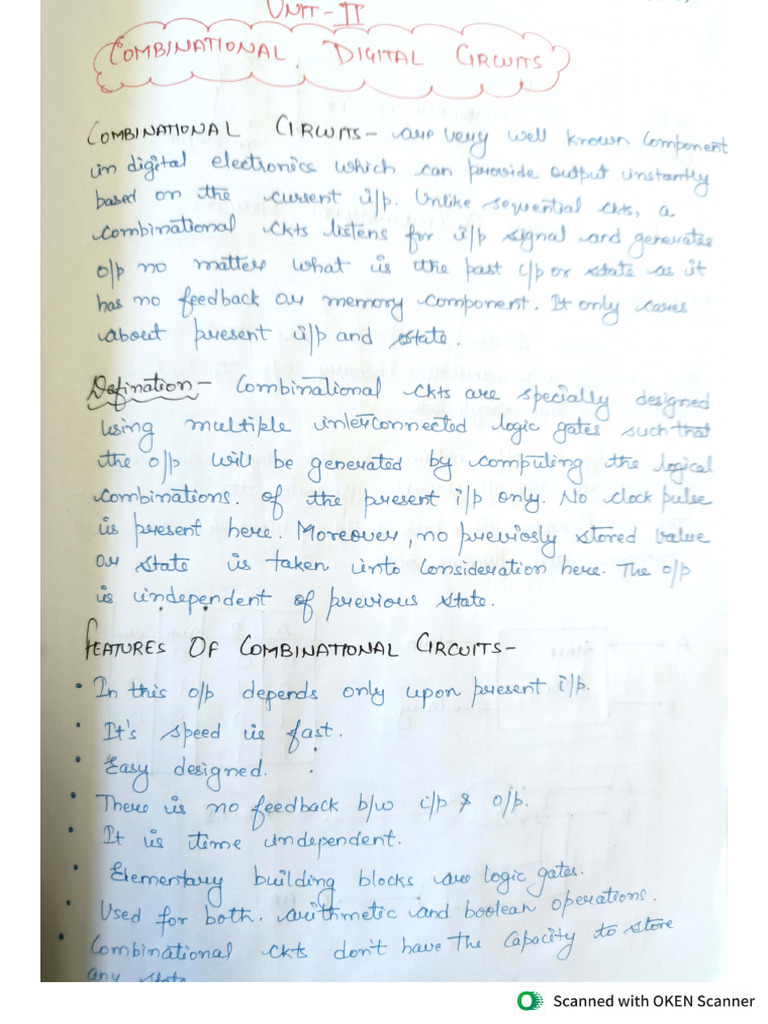 UNIT-II
COMBINATIONAL DIGITAL CIRCUITS
COMBINATIONAL CIRCUITS- are very well known component
in digital electronics which can provide output instantly
based on the current i/p. Unlike sequential ckts, a
combinational ckts listens for i/p signal and generates
o/p no matter what is the past i/p or state as it
has no feedback or memory component. It only cares
about present i/p and state.
Defination- Combinational ckts are specially designed
using multiple interconnected logic gates such that
the o/p will be generated by computing the logical
combinations. of the present i/p only. No clock pulse
is present here. Moreover, no previosly stored value
or state is taken into consideration here. The o/p
is independent of previous state.
FEATURES OF COMBINATIONAL CIRCUITS-
• In this o/p depends only upon present i/p.
• It's speed is fast.
• Easy designed.
• There is no feedback b/w i/p & o/p.
• It is time independent.
• Elementary building blocks are logic gates.
• Used for both. arithmetic and boolean operations.
• Combinational ckts don't have the capacity to store
any state
Scanned with OKEN Scanner